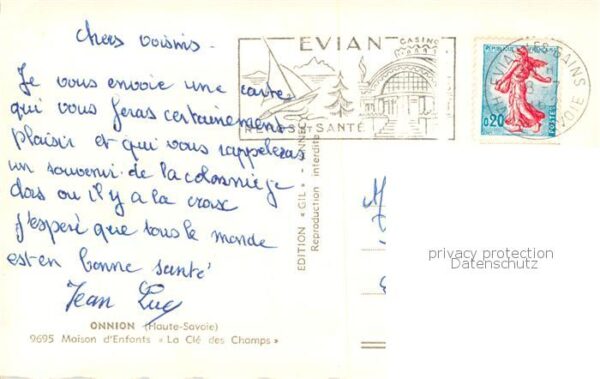 chers voisins.
Je vous envoie une carte
qui vous feras certainement
plaisir et qui vous rappeleras
un souvenir de la colonnie je
dors ou il y a la croix
j'espère que tous le monde
est en bonne santé
Jean Luc
ONNION (Haute-Savoie)
9695 Maison d'Enfants « La Clé des Champs »
EDITION « GIL » -
Reproduction interdite
EVIAN
CASINO
SANTÉ
REPUBLIQUE FRANÇAISE
0,20
POSTES
EVIAN LES BAINS
SAVOIE
privacy protection
Datenschutz